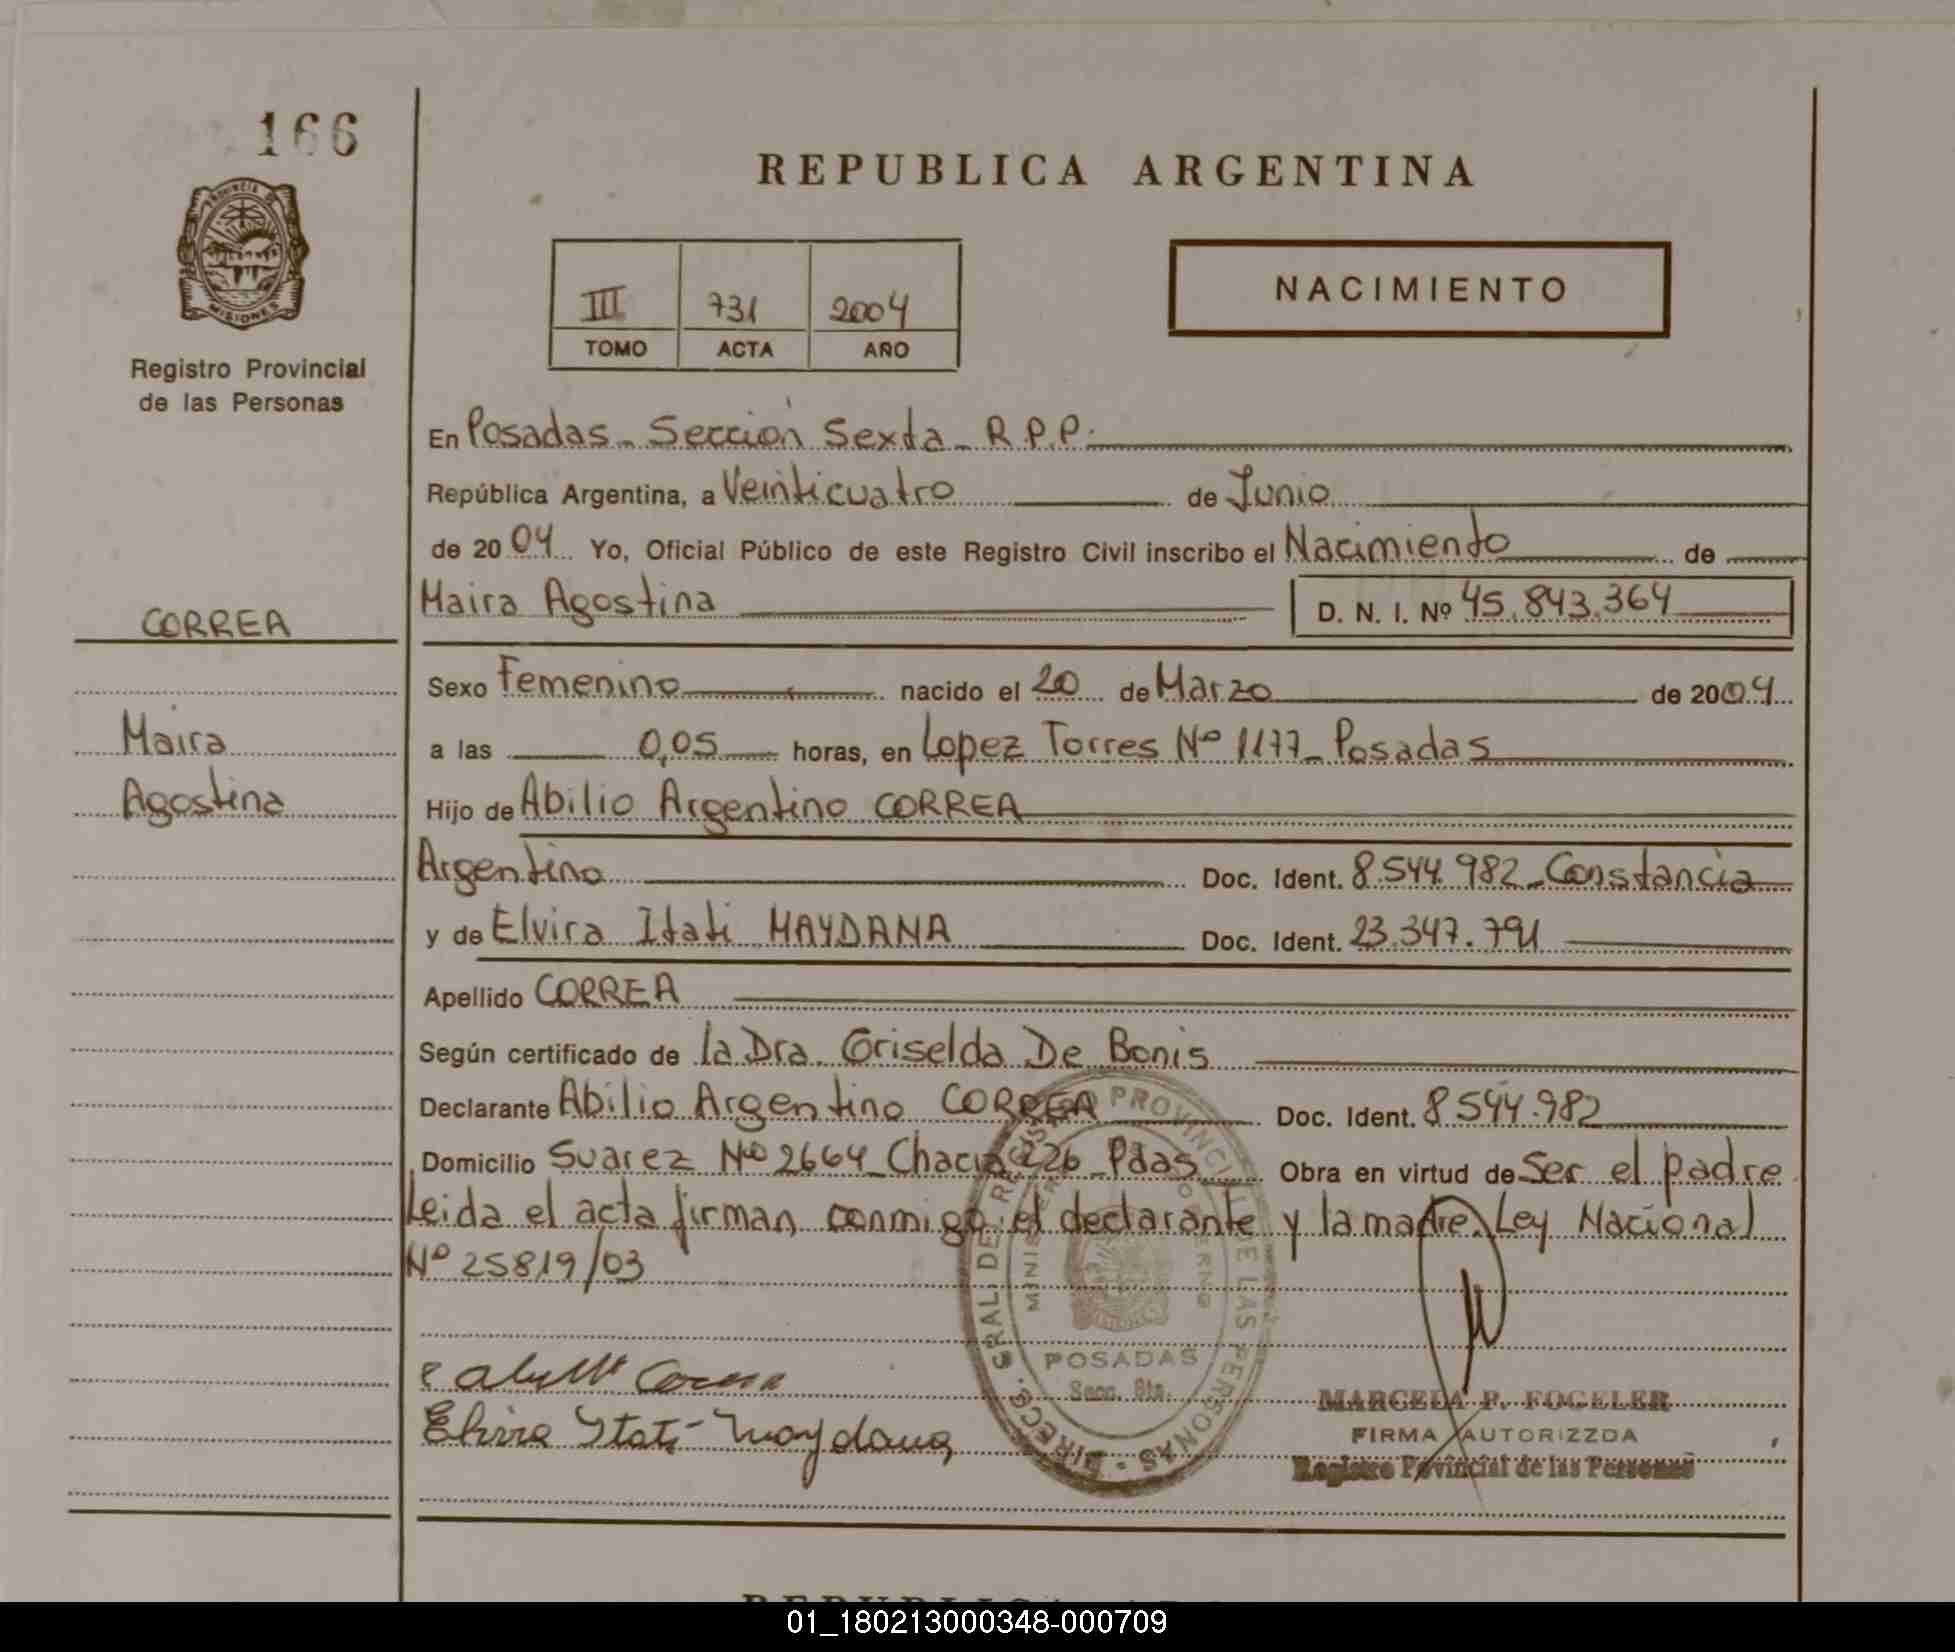 166
REPUBLICA ARGENTINA
PROVINCIA DE
MISIONES
Registro Provincial
de las Personas
III 731 2004
TOMO ACTA AÑO
NACIMIENTO
En Posadas - Sección Sexta - R.P.P.
República Argentina, a Veinticuatro de Junio
de 2004 Yo, Oficial Público de este Registro Civil inscribo el Nacimiento de
Maira Agostina D. N. I. Nº 45.843.364
CORREA
Sexo Femenino nacido el 20 de Marzo de 2004
Maira
a las 0,05 horas, en Lopez Torres Nº 1177 - Posadas
Agostina
Hijo de Abilio Argentino CORREA
Argentino Doc. Ident. 8.544.982 - Constancia
y de Elvira Itati MAYDANA Doc. Ident. 23.347.791
Apellido CORREA
Según certificado de la Dra. Griselda De Bonis
Declarante Abilio Argentino CORREA Doc. Ident. 8.544.982
Domicilio Suarez Nº 2664 - Chacra 226 - Pdas Obra en virtud de Ser el padre
Leida el acta firman conmigo el declarante y la madre. Ley Nacional
Nº 25819/03
DIRECC. GRAL. DE REGISTRO PROVINCIAL DE LAS PERSONAS
POSADAS
Secc. 6ta.
Correa
Elvira Itati Maydana
MARCELA P. FOGELER
FIRMA AUTORIZZDA
Registro Povincial de las Personas
01_180213000348-000709